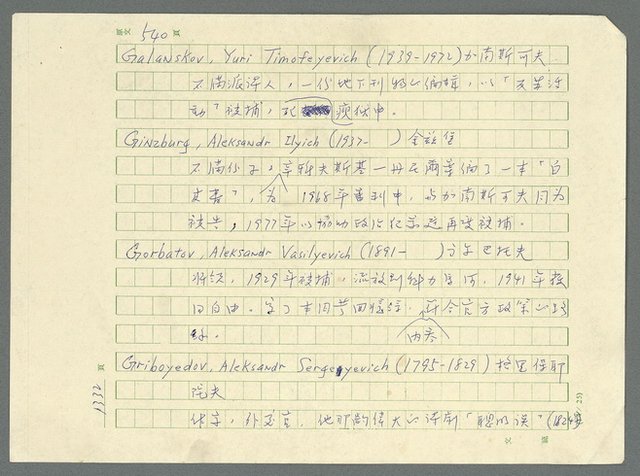 540
Galanskov, Yuri Timofeyevich (1939-1972) 加南斯可夫
不滿派詩人，一份地下刊物的編輯，以「反革活
動」被捕，死獄中。
Ginzburg, Aleksandr Ilyich (1937- ) 金茲堡
不滿份子，為辛雅夫斯基—丹尼爾案編了一本「白
皮書」，1968年審判中，與加南斯可夫同為
被告，1977年以協助政治犯家 再度被捕。
Gorbatov, Aleksandr Vasilyevich (1891- ) 戈巴托夫
將領，1929年被捕，流放到科力馬河，1941年
回自由。寫了本因 回憶 符合官方政策的路
線。 內容
Griboyedov, Aleksandr Sergeyevich (1795-1829) 格里保耶
陀夫
作家，外交官，他那齣偉大的詩劇「聰明誤」(1824
1332 頁